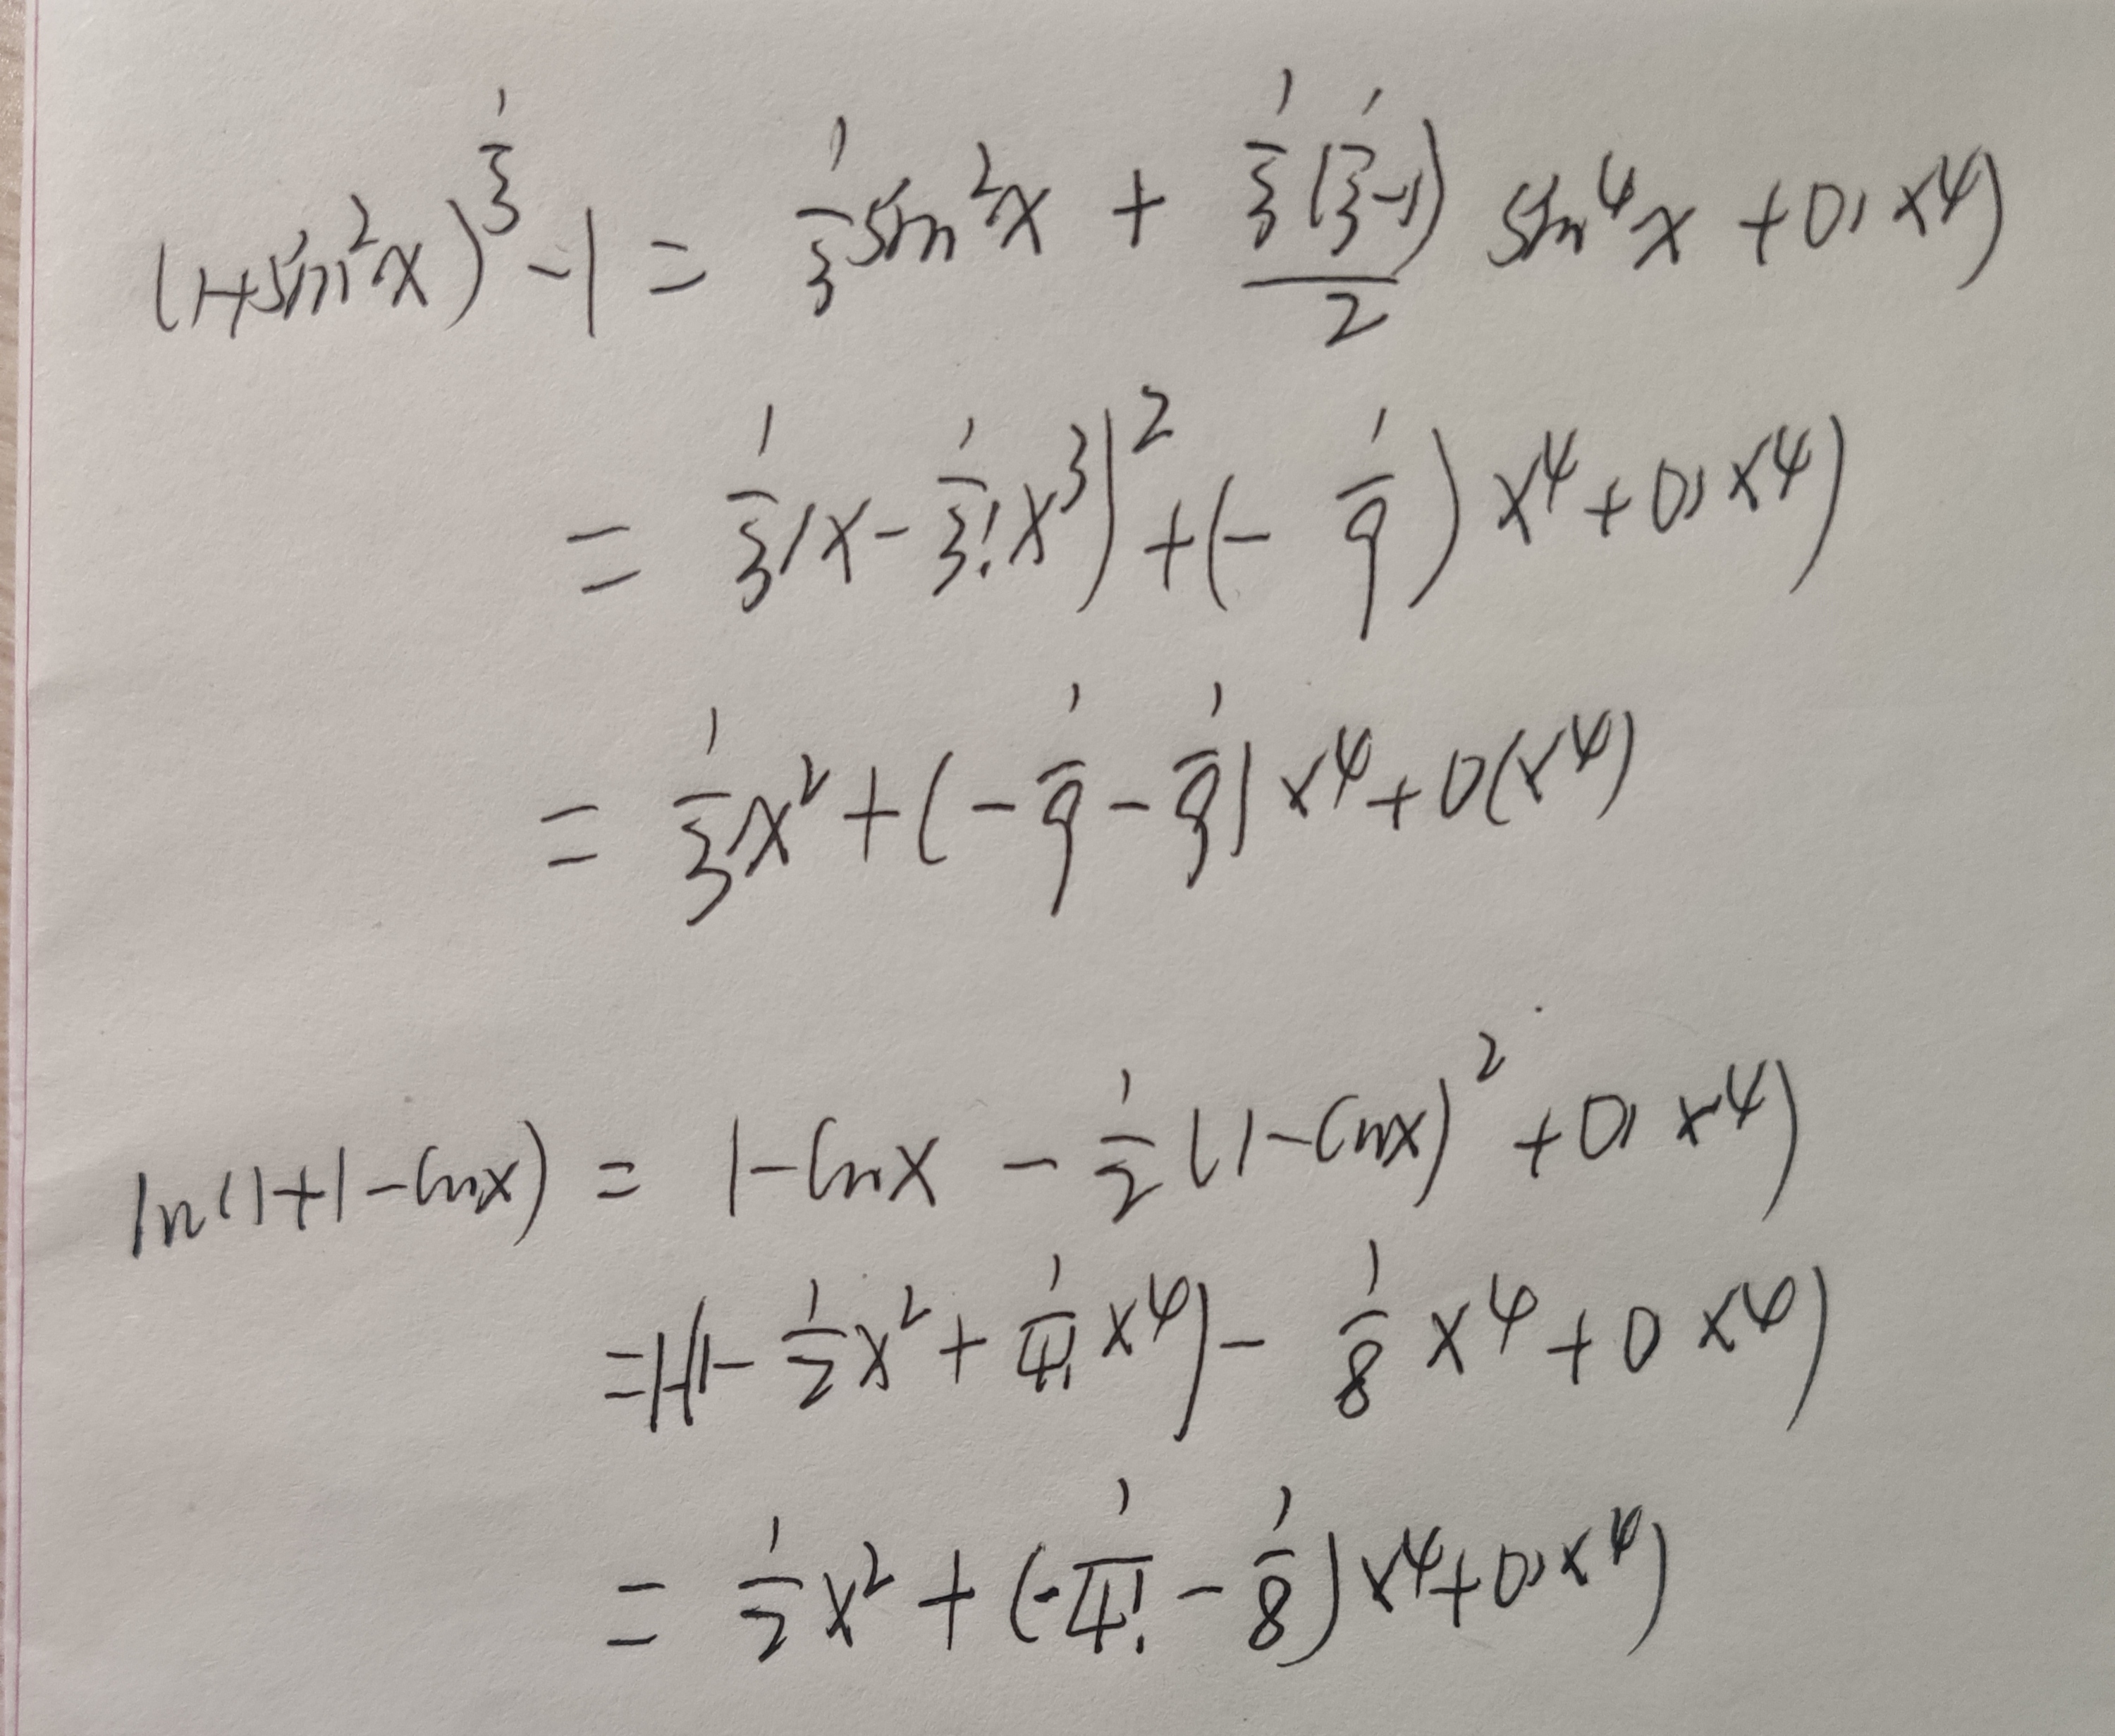 (1+sin²x)^{1/3} - 1 = \frac{1}{3} sin²x + \frac{\frac{1}{3}(\frac{1}{3}-1)}{2} sin⁴x + o(x⁴)
= \frac{1}{3}(x - \frac{1}{3!}x³)² + (-\frac{1}{9})x⁴ + o(x⁴)
= \frac{1}{3}x² + (-\frac{1}{9} - \frac{1}{9})x⁴ + o(x⁴)
ln(1+1-cosx) = 1-cosx - \frac{1}{2}(1-cosx)² + o(x⁴)
= 1-(1-\frac{1}{2}x² + \frac{1}{4!}x⁴) - \frac{1}{8}x⁴ + o(x⁴)
= \frac{1}{2}x² + (-\frac{1}{4!} - \frac{1}{8})x⁴ + o(x⁴)